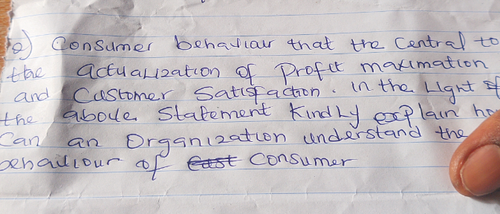 e) Consumer behaviour that the Central to
the actualization of Profit maximation
and Customer Satisfaction. in the Light of
the above Statement Kindly explain ho
Can an Organization understand the
behaviour of East Consumer